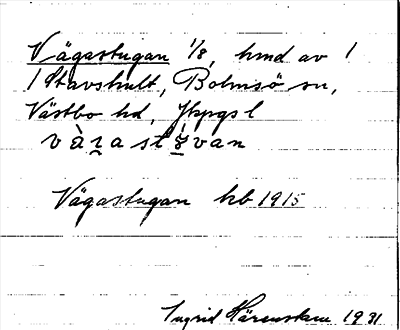 Vägastugan 1/8, hmd av 1
1 Stavshult, Bolmsö sn,
Västbo hd, Jkpgs l
Vägastugan kb 1915
Ingrid Härenstam 1931